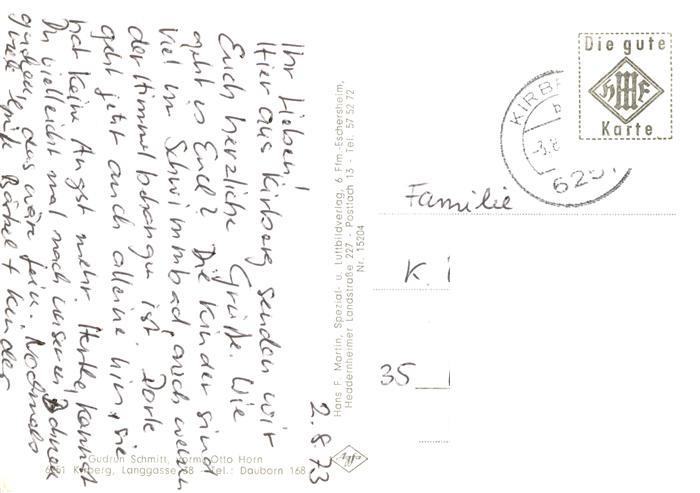 Ihr Lieben!
Hier aus Kirberg senden wir
Euch herzliche Grüße. Wie
geht es Euch? Die Kinder sind
viel im Schwimmbad, auch wenn
der Himmel behangen ist. Dorle
geht jetzt auch alleine hin + sie
hat keine Angst mehr. Herthe, kannst
Du vielleicht mal nach unseren
gucken, das wäre fein. Nochmals
viele Grüße Bärbel + Kinder
2.8.73
Gudrun Schmitt, vorm. Otto Horn
6251 Kirberg, Langgasse 38 - Tel.: Dauborn 168
Hans F. Martin, Spezial- u. Luftbildverlag, 6 Ffm.-Eschersheim,
Heddernheimer Landstraße 227 - Postfach 13 - Tel. 57 52 72
Nr. 15204
Agfa
Die gute
Karte
KIRBE
6251
Familie
K.
35